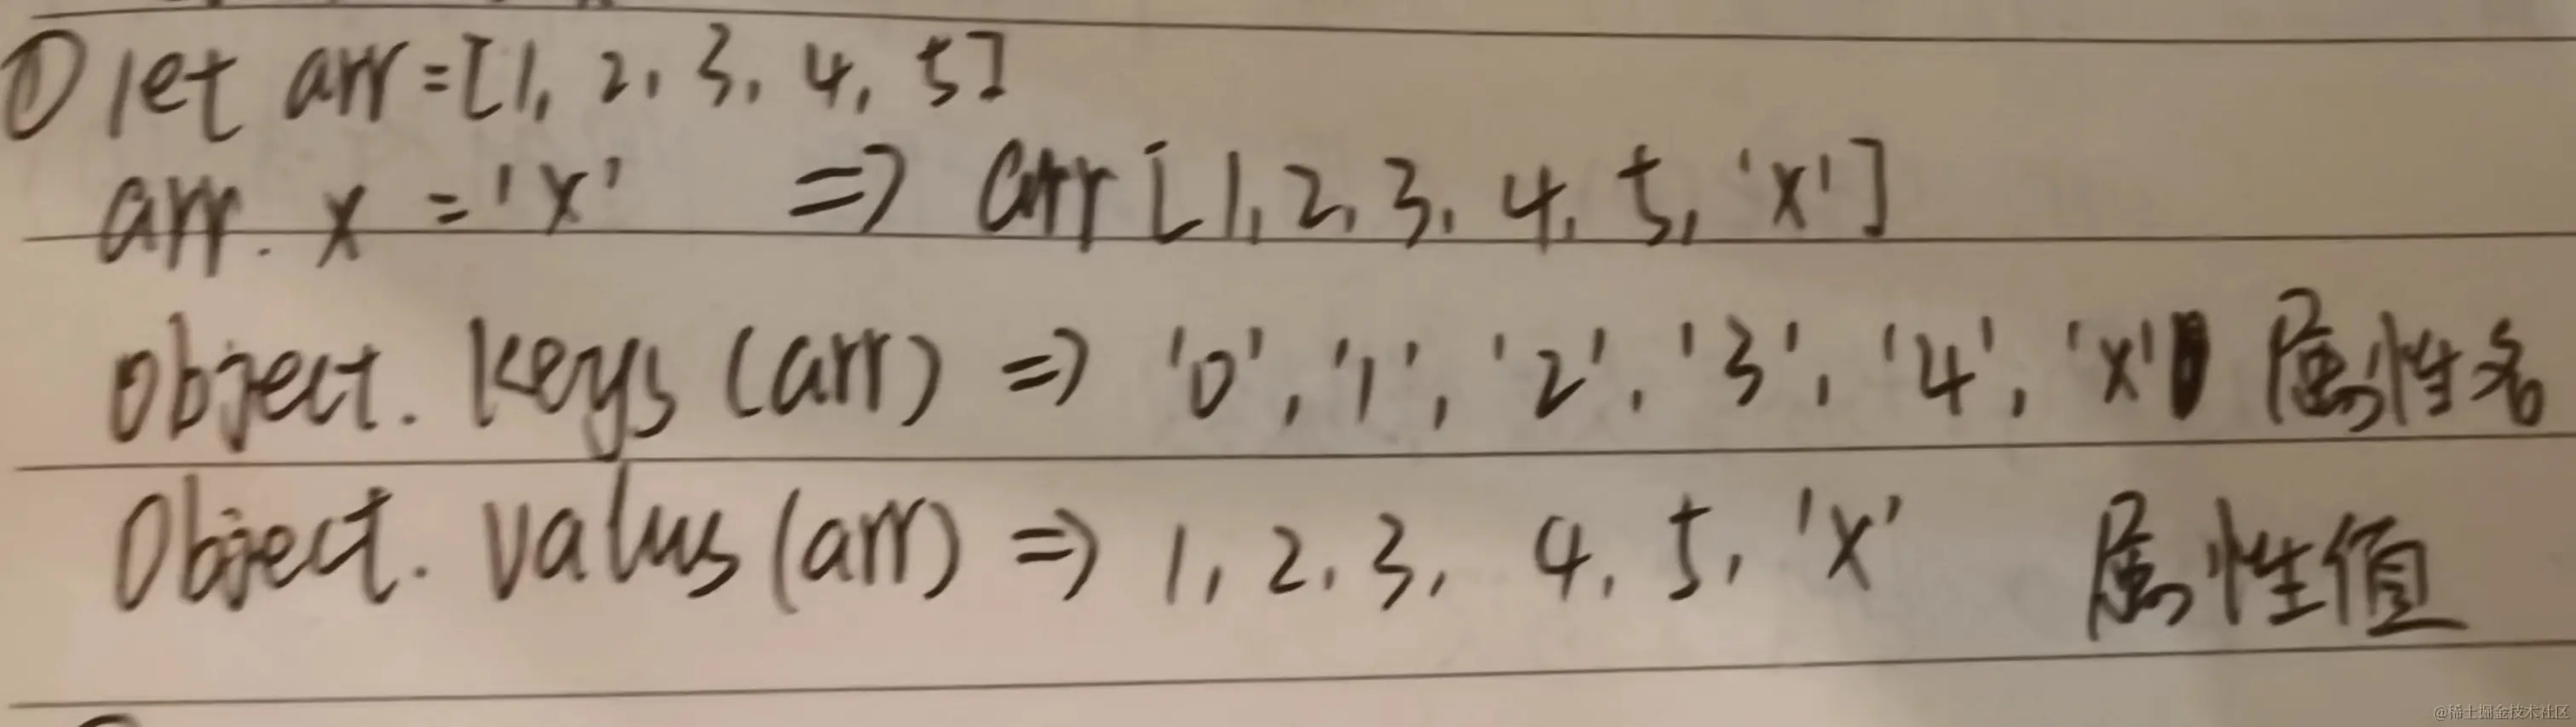 ① let arr=[1, 2, 3, 4, 5]
arr.x='x' => arr[1, 2, 3, 4, 5, 'x']
Object.keys(arr) => '0', '1', '2', '3', '4', 'x' 属性名
Object.values(arr) => 1, 2, 3, 4, 5, 'x' 属性值
@稀土掘金技术社区